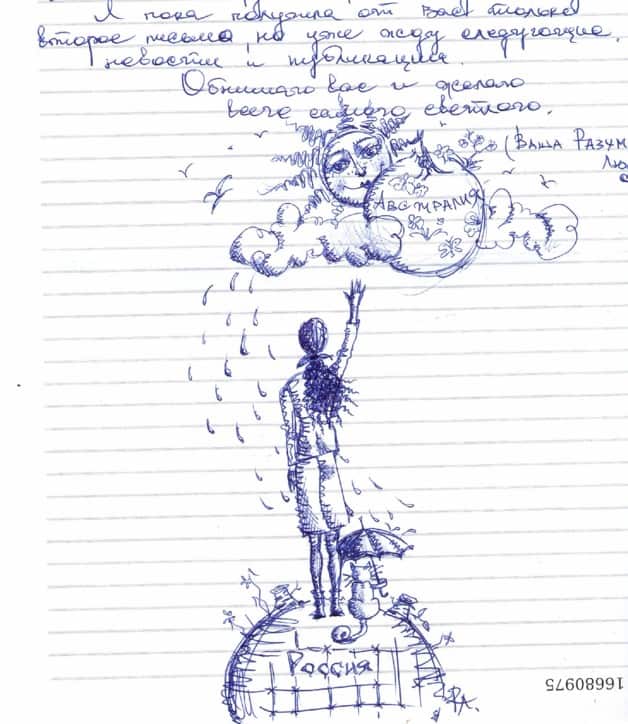 Я пока получила от Вас только
второе письмо, но уже жду следующие,
новости и публикации.
Обнимаю вас и желаю
всего самого светлого.
(Ваша Разум
Лю
Австралия
Россия
РА.
16680975